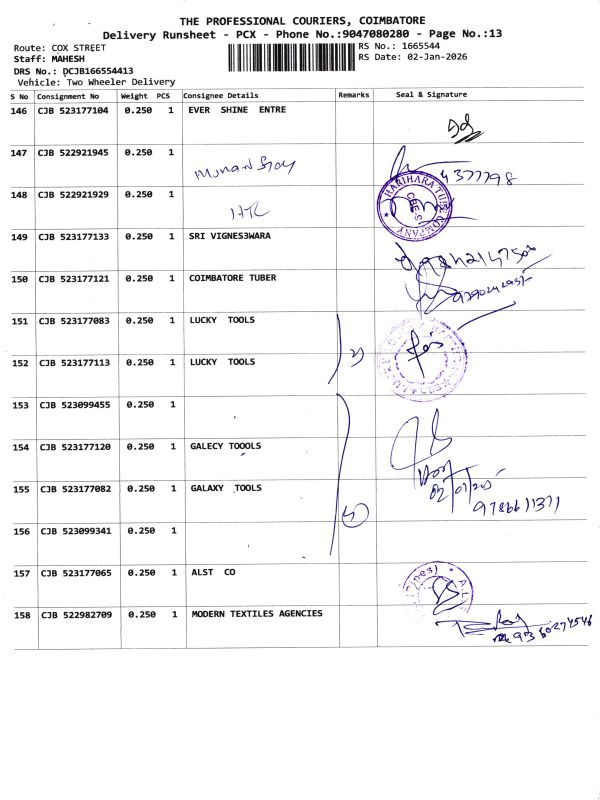 THE PROFESSIONAL COURIERS, COIMBATORE
Delivery Runsheet - PCX - Phone No.:9047080280 - Page No.:13
Route: COX STREET
RS No.: 1665544
Staff: MAHESH
RS Date: 02-Jan-2026
DRS No.: DCJB166554413
Vehicle: Two Wheeler Delivery
S No Consignment No Weight PCS Consignee Details Remarks Seal & Signature
146 CJB 523177104 0.250 1 EVER SHINE ENTRE
147 CJB 522921945 0.250 1
4377798
148 CJB 522921929 0.250 1 HTC
HARIHARA TUBE COMPANY
CBE-S
149 CJB 523177133 0.250 1 SRI VIGNES3WARA
150 CJB 523177121 0.250 1 COIMBATORE TUBER
151 CJB 523177083 0.250 1 LUCKY TOOLS
152 CJB 523177113 0.250 1 LUCKY TOOLS
2)
153 CJB 523099455 0.250 1
154 CJB 523177120 0.250 1 GALECY TOOOLS
155 CJB 523177082 0.250 1 GALAXY TOOLS
9786611371
156 CJB 523099341 0.250 1
157 CJB 523177065 0.250 1 ALST CO
158 CJB 522982709 0.250 1 MODERN TEXTILES AGENCIES
9360274546